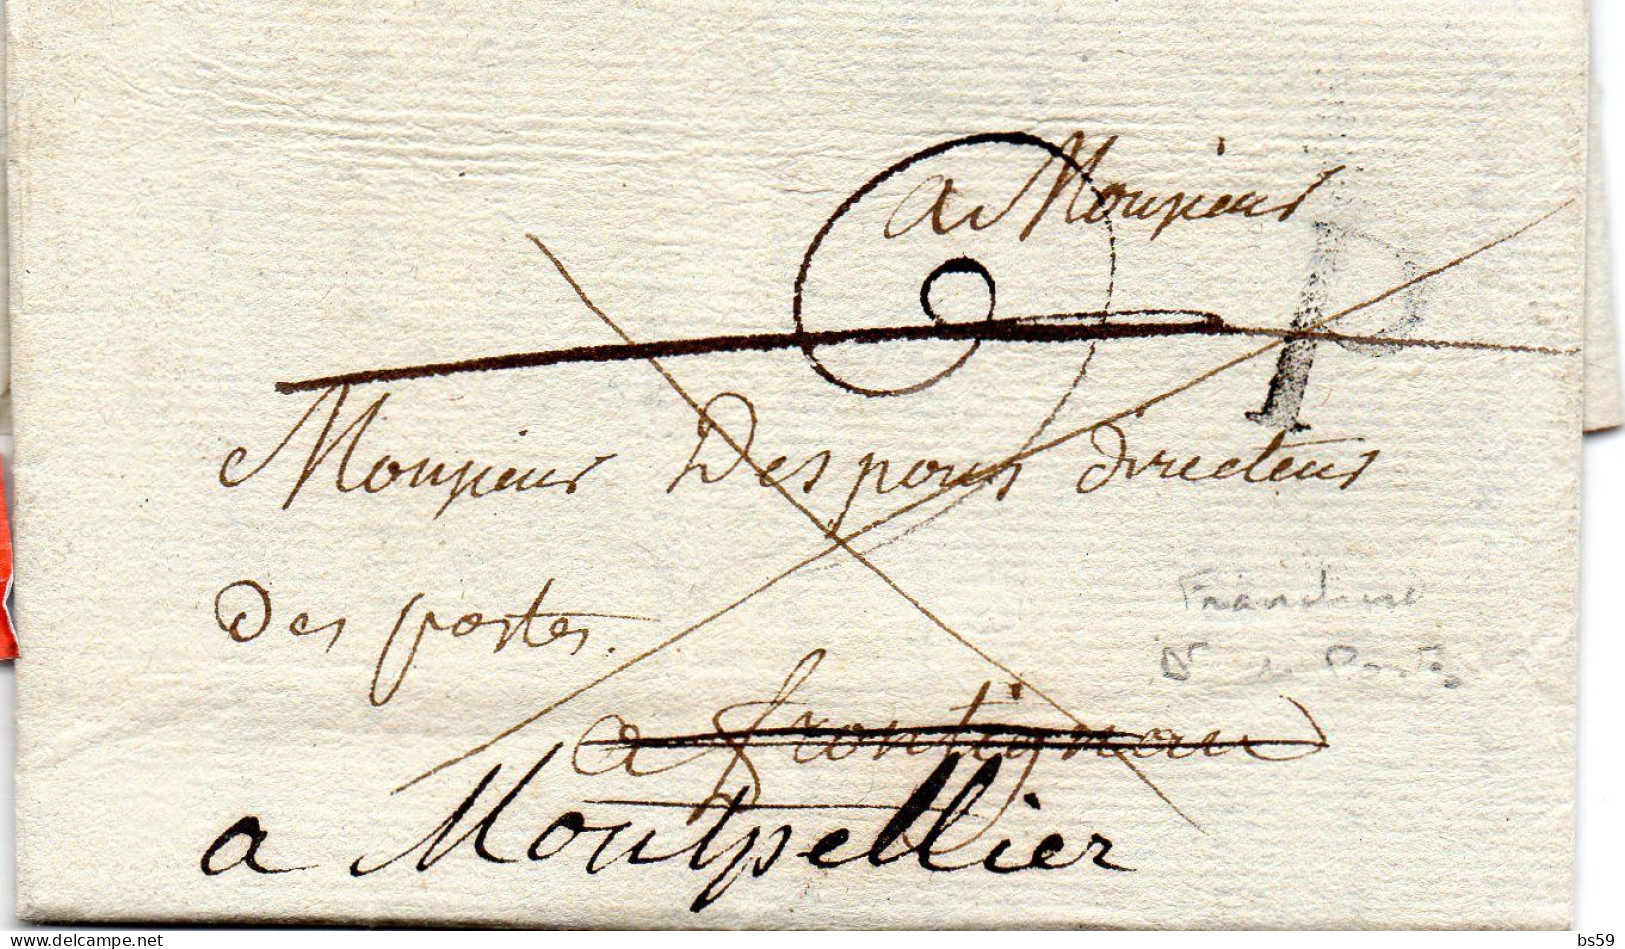 a Monsieur
P
Monsieur Despous directeur
Des postes.
a frontignan
a Montpellier
Franchise
Dr de Postes
www.delcampe.net
bs59